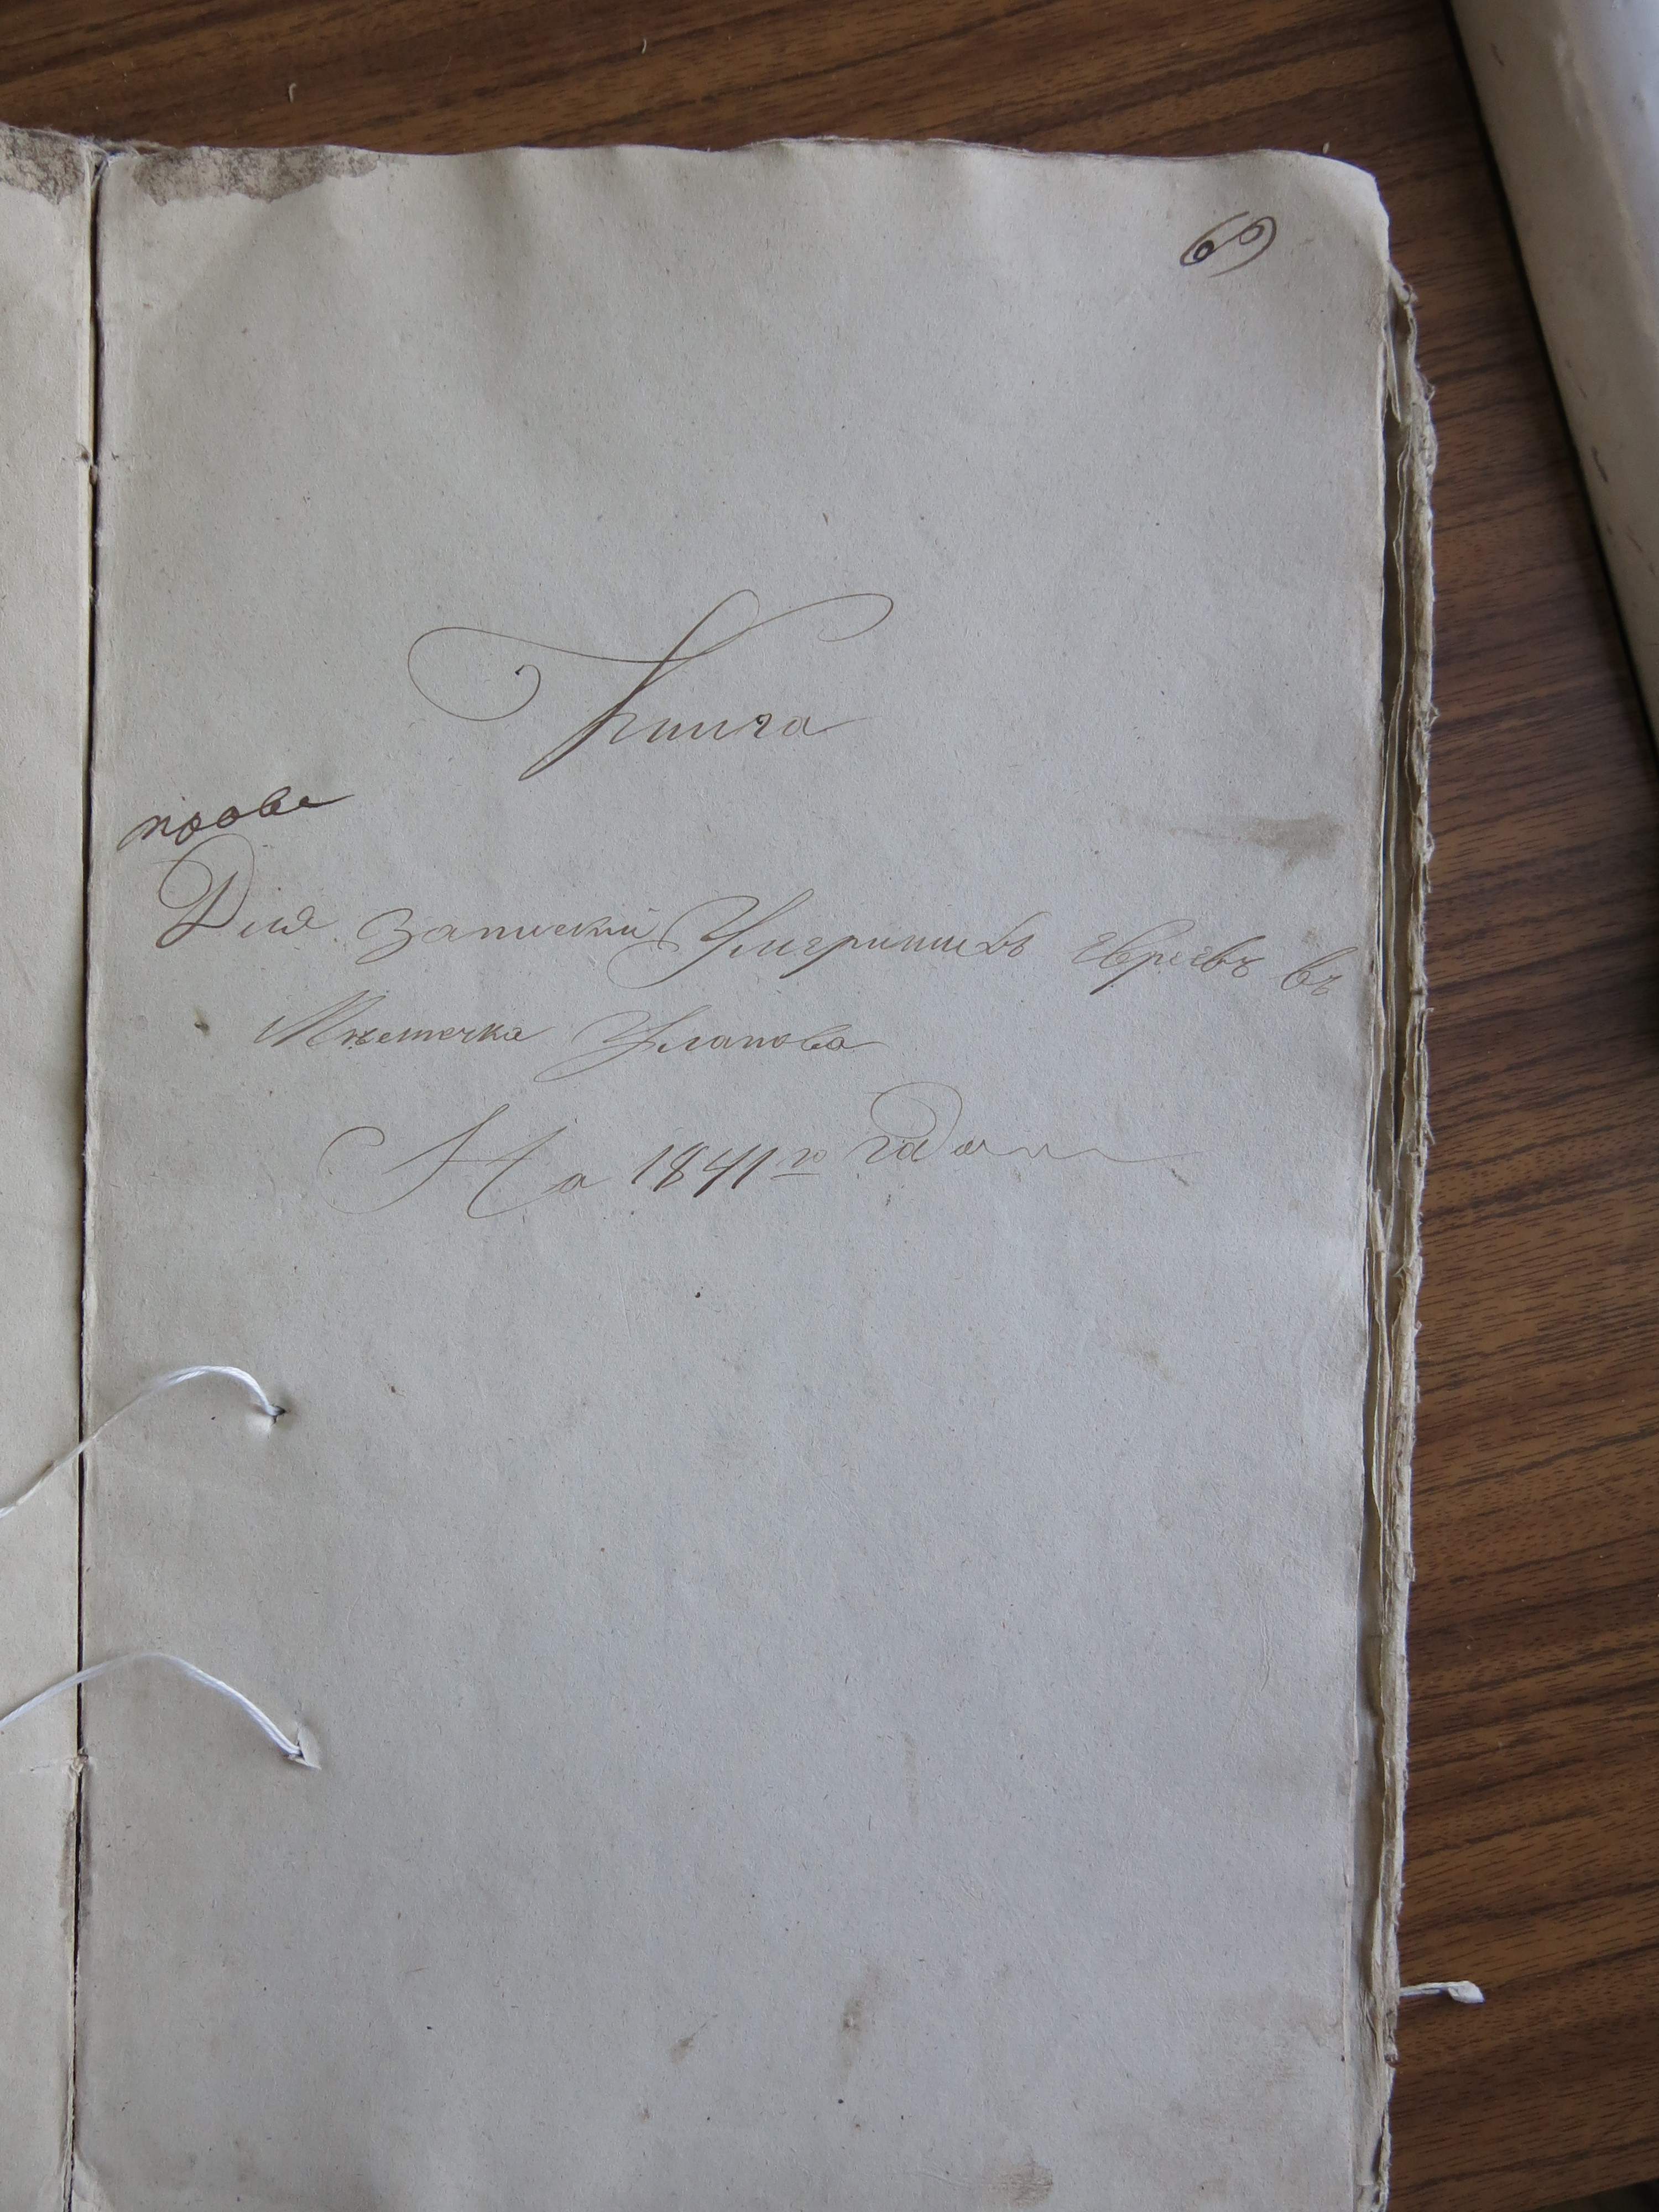 69
Книга
Для записки Умершихъ евреевъ въ
Мѣстечка Уланова
На 1841го года